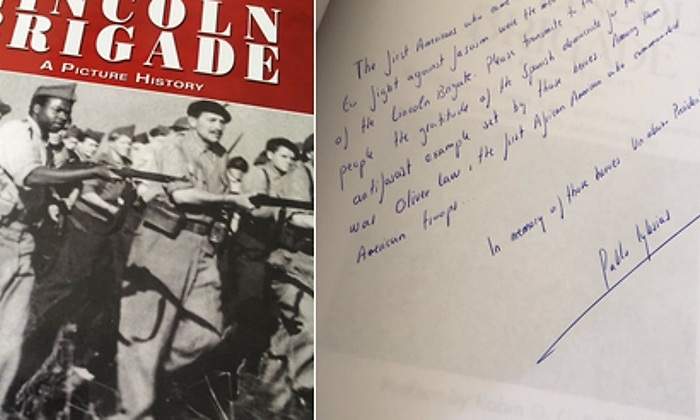 LINCOLN
BRIGADE
A PICTURE HISTORY
The first Americans who came
to fight against fascism were the
of the Lincoln Brigade. Please transmite to the
people the gratitude of the Spanish democrats for the
antifascist example set by those heroes. Among them
was Oliver Law, the first African American who commanded
American troops.
In memory of those heroes
Pablo Iglesias